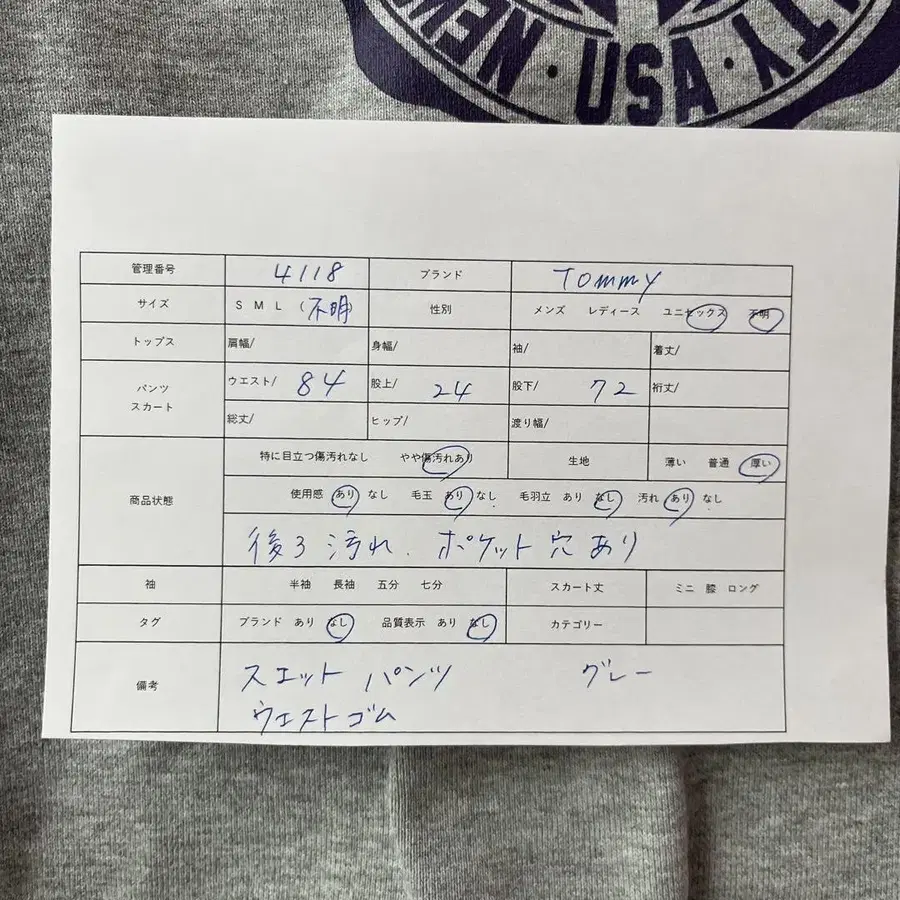 NEW · USA · ITY
管理番号 4118 ブランド Tommy
サイズ S M L (不明) 性別 メンズ レディース ユニセックス 不明
トップス 肩幅/ 身幅/ 袖/ 着丈/
パンツ スカート ウエスト/ 84 股上/ 24 股下/ 72 裄丈/
総丈/ ヒップ/ 渡り幅/
商品状態 特に目立つ傷汚れなし やや傷汚れあり 生地 薄い 普通 厚い
使用感 あり なし 毛玉 あり なし 毛羽立 あり なし 汚れ あり なし
後ろ汚れ、ポケット穴あり
袖 半袖 長袖 五分 七分 スカート丈 ミニ 膝 ロング
タグ ブランド あり なし 品質表示 あり なし カテゴリー
備考 スエット パンツ グレー
ウエストゴム